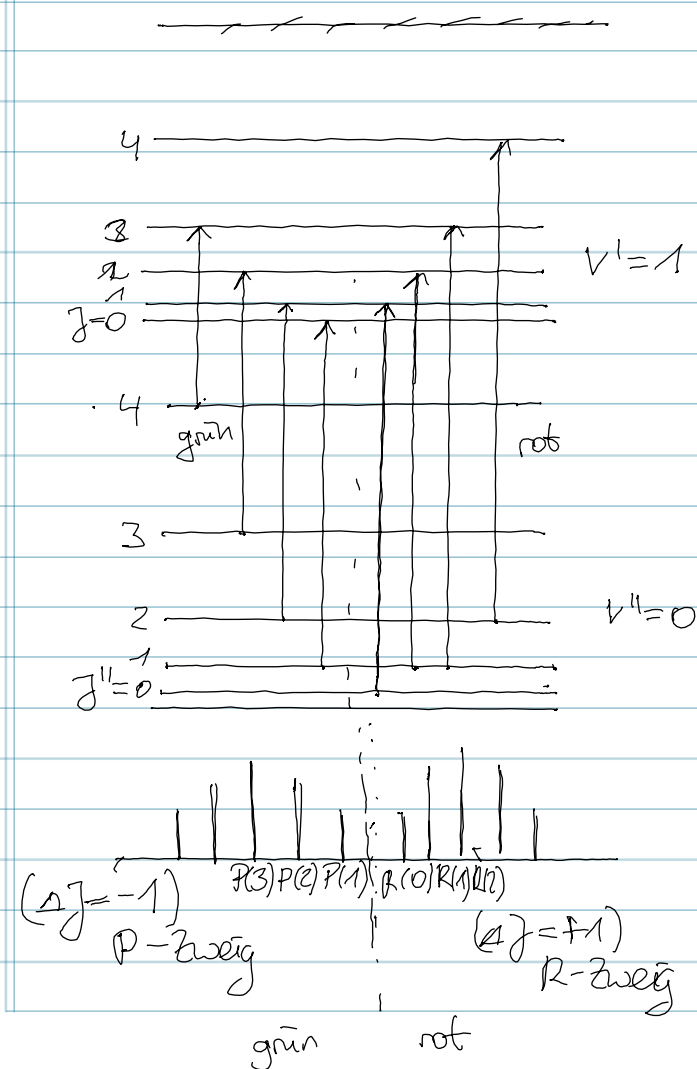 4
3
2
V' = 1
1
J=0
4
grün
rot
3
2
V'' = 0
1
J''=0
P(3) P(2) P(1) R(0) R(1) R(2)
(ΔJ = -1)
(ΔJ = +1)
P-Zweig
R-Zweig
grün
rot